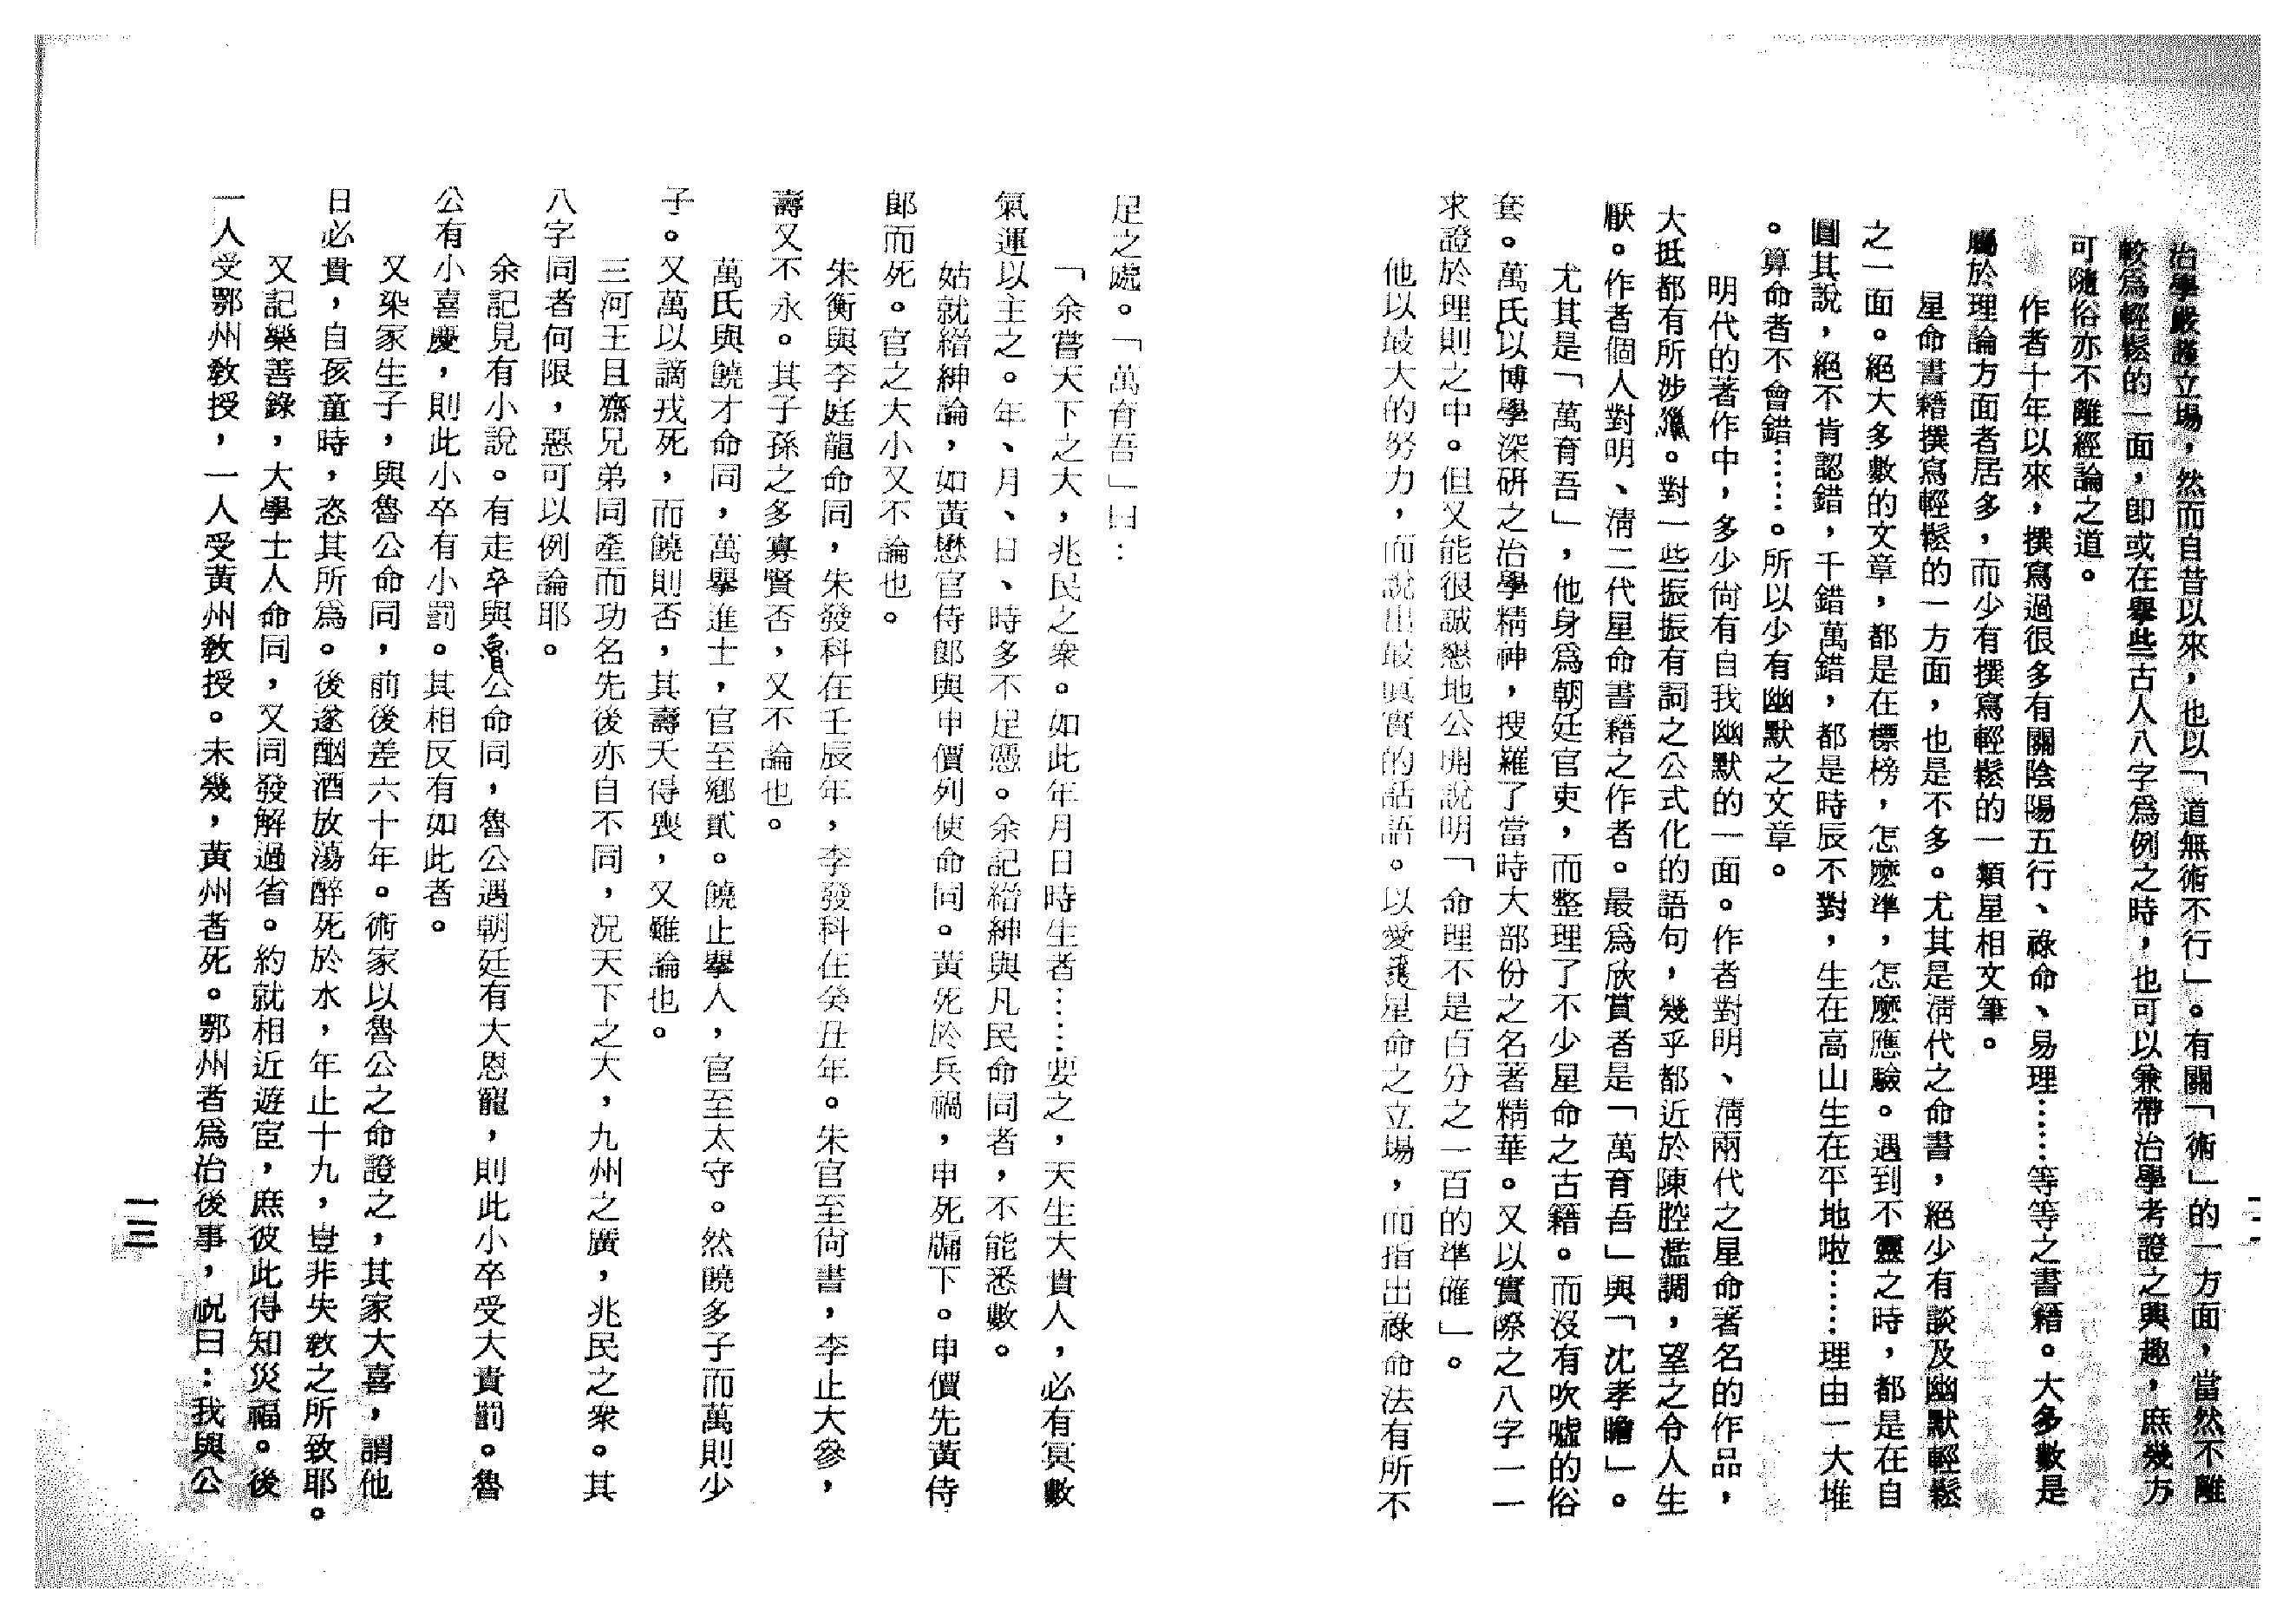 治學嚴謹立場，然而自昔以來，也以「道無術不行」。有關「術」的一方面，當然不離
較爲輕鬆的一面，卽或在舉些古人八字爲例之時，也可以兼帶治學考證之興趣，庶幾方
可隨俗亦不離經論之道。
作者十年以來，撰寫過很多有關陰陽五行、祿命、易理……等等之書籍。大多數是
屬於理論方面者居多，而少有撰寫輕鬆的一類星相文筆。
星命書籍撰寫輕鬆的一方面，也是不多。尤其是淸代之命書，絕少有談及幽默輕鬆
之一面。絕大多數的文章，都是在標榜，怎麽準，怎麽應驗。遇到不靈之時，都是在自
圓其說，絕不肯認錯，千錯萬錯，都是時辰不對，生在高山生在平地啦……理由一大堆
。算命者不會錯……。所以少有幽默之文章。
明代的著作中，多少尙有自我幽默的一面。作者對明、淸兩代之星命著名的作品，
大抵都有所涉獵。對一些振振有詞之公式化的語句，幾乎都近於陳腔濫調，望之令人生
厭。作者個人對明、淸二代星命書籍之作者。最爲欣賞者是「萬育吾」與「沈孝瞻」。
尤其是「萬育吾」，他身爲朝廷官吏，而整理了不少星命之古籍。而沒有吹噓的俗
套。萬氏以博學深硏之治學精神，搜羅了當時大部份之名著精華。又以實際之八字一一
求證於理則之中。但又能很誠懇地公開說明「命理不是百分之一百的準確」。
他以最大的努力，而說出最眞實的話語。以愛護星命之立場，而指出祿命法有所不
足之處。「萬育吾」曰：
「余嘗天下之大，兆民之衆。如此年月日時生者……要之，天生大貴人，必有冥數
氣運以主之。年、月、日、時多不足憑。余記縉紳與凡民命同者，不能悉數。
姑就縉紳論，如黃懋官侍郞與申價列使命同。黃死於兵禍，申死牖下。申價先黃侍
郞而死。官之大小又不論也。
朱衡與李庭龍命同，朱發科在壬辰年，李發科在癸丑年。朱官至尙書，李止大參，
壽又不永。其子孫之多寡賢否，又不論也。
萬氏與饒才命同，萬舉進士，官至鄉貳。饒止舉人，官至太守。然饒多子而萬則少
子。又萬以謫戎死，而饒則否，其壽夭得喪，又難論也。
三河王且齋兄弟同產而功名先後亦自不同，況天下之大，九州之廣，兆民之衆。其
八字同者何限，惡可以例論耶。
余記見有小說。有走卒與魯公命同，魯公遇朝廷有大恩寵，則此小卒受大責罰。魯
公有小喜慶，則此小卒有小罰。其相反有如此者。
又染家生子，與魯公命同，前後差六十年。術家以魯公之命證之，其家大喜，謂他
日必貴，自孩童時，恣其所爲。後遂酗酒放蕩醉死於水，年止十九，豈非失敎之所致耶。
又記樂善錄，大學士人命同，又同發解過省。約就相近遊宦，庶彼此得知災福。後
一人受鄂州敎授，一人受黃州敎授。未幾，黃州者死。鄂州者爲治後事，祝曰：我與公
一三